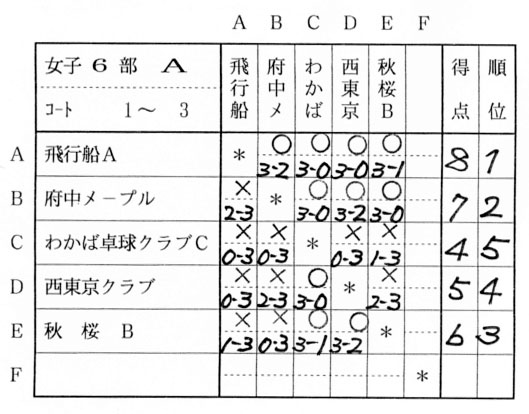 A B C D E F
女子 6 部 A 飛行船 府中メ わかば 西東京 秋桜B 得点 順位
コート 1～ 3
A 飛行船A * ○ 3-2 ○ 3-0 ○ 3-0 ○ 3-1 8 1
B 府中メープル × 2-3 * ○ 3-0 ○ 3-2 ○ 3-0 7 2
C わかば卓球クラブC × 0-3 × 0-3 * × 0-3 × 1-3 4 5
D 西東京クラブ × 0-3 × 2-3 ○ 3-0 * × 2-3 5 4
E 秋 桜 B × 1-3 × 0-3 ○ 3-1 ○ 3-2 * 6 3
F *